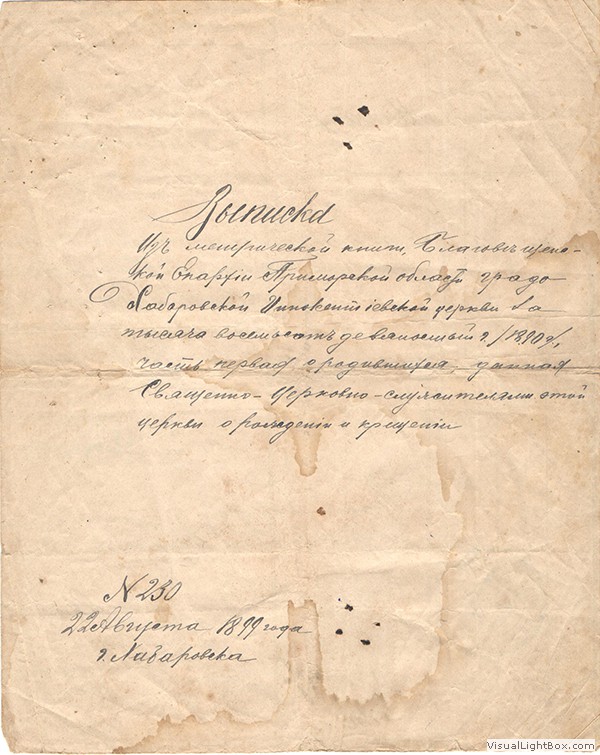 Выписка
Изъ метрической книги, Благовѣщенс-
кой Епархіи Приморской области градо
Хабаровской Иннокентіевской церкви за
тысяча восемьсотъ девяностый г. /1890 г/,
часть первая о родившихся, данная
Священно-Церковно-служителями этой
церкви о рожденіи и крещеніи
N 230
22 Августа 1899 года
г. Хабаровска
VisualLightBox.com